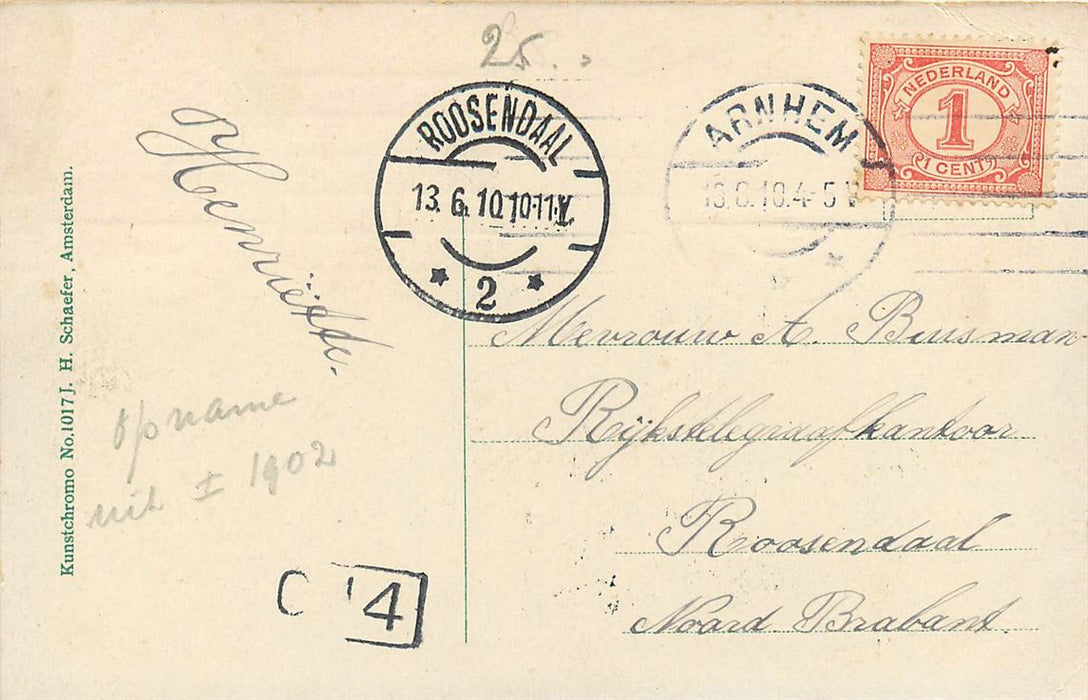 25.
ROOSENDAAL
13.6.10 10-11V.
2
ARNHEM
13.6.10.4-5 V
NEDERLAND
1
1 CENT
Henriëtte.
Mevrouw A. Buisman
Rijkstelegraafkantoor
Roosendaal
Noord Brabant.
Opname
uit ± 1902
4
Kunstchromo No.1017 J. H. Schaefer, Amsterdam.